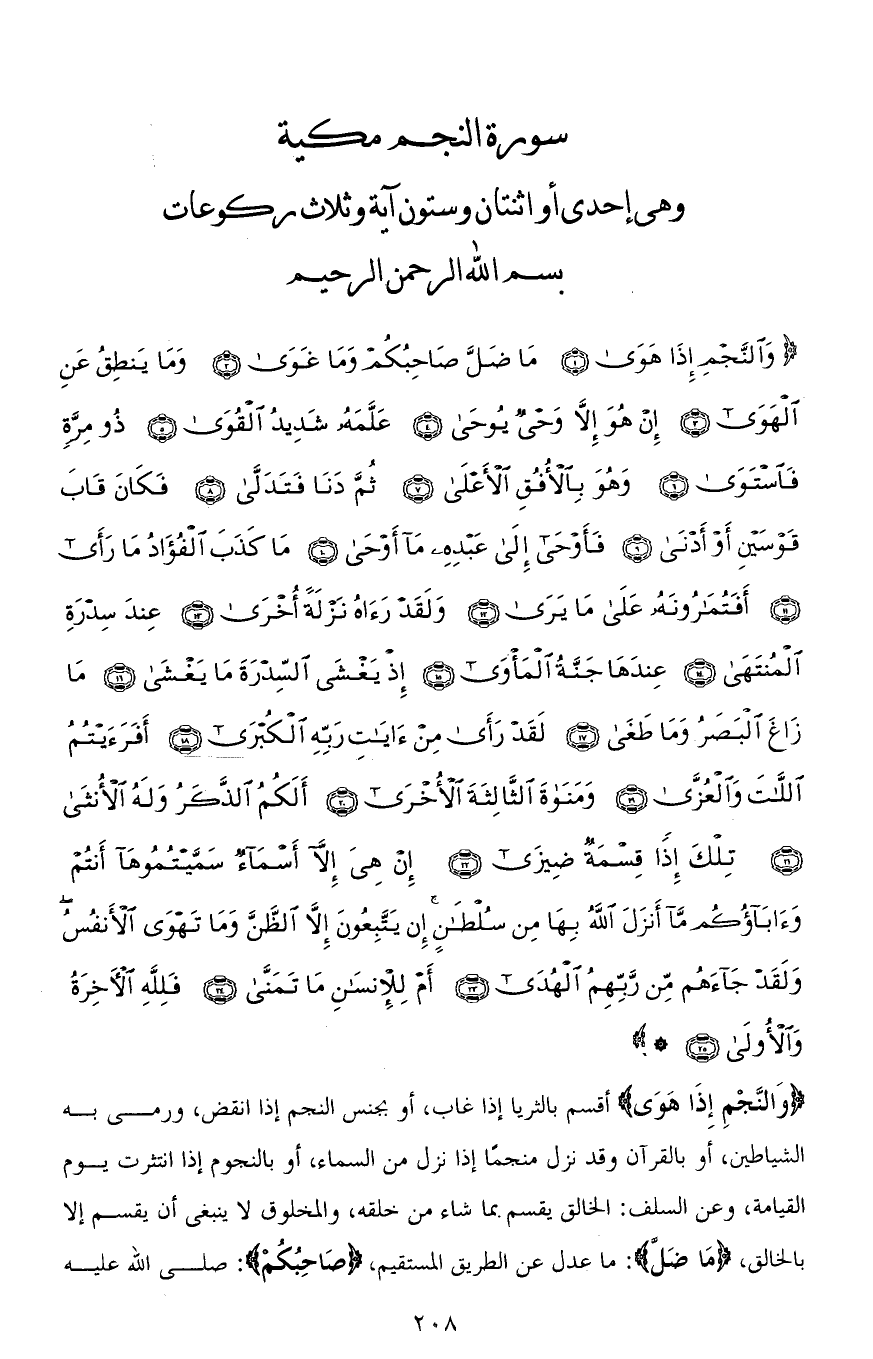 سورة النجم مكية
وهى إحدى أو اثنتان وستون آية وثلاث ركوعات
بسم الله الرحمن الرحيم
﴿ وَٱلنَّجْمِ إِذَا هَوَىٰ ١ مَا ضَلَّ صَاحِبُكُمْ وَمَا غَوَىٰ ٢ وَمَا يَنطِقُ عَنِ
ٱلْهَوَىٰٓ ٣ إِنْ هُوَ إِلَّا وَحْىٌ يُوحَىٰ ٤ عَلَّمَهُۥ شَدِيدُ ٱلْقُوَىٰ ٥ ذُو مِرَّةٍ
فَٱسْتَوَىٰ ٦ وَهُوَ بِٱلْأُفُقِ ٱلْأَعْلَىٰ ٧ ثُمَّ دَنَا فَتَدَلَّىٰ ٨ فَكَانَ قَابَ
قَوْسَيْنِ أَوْ أَدْنَىٰ ٩ فَأَوْحَىٰٓ إِلَىٰ عَبْدِهِۦ مَآ أَوْحَىٰ ١٠ مَا كَذَبَ ٱلْفُؤَادُ مَا رَأَىٰٓ
١١ أَفَتُمَـٰرُونَهُۥ عَلَىٰ مَا يَرَىٰ ١٢ وَلَقَدْ رَءَاهُ نَزْلَةً أُخْرَىٰ ١٣ عِندَ سِدْرَةِ
ٱلْمُنتَهَىٰ ١٤ عِندَهَا جَنَّةُ ٱلْمَأْوَىٰٓ ١٥ إِذْ يَغْشَى ٱلسِّدْرَةَ مَا يَغْشَىٰ ١٦ مَا
زَاغَ ٱلْبَصَرُ وَمَا طَغَىٰ ١٧ لَقَدْ رَأَىٰ مِنْ ءَايَـٰتِ رَبِّهِ ٱلْكُبْرَىٰٓ ١٨ أَفَرَءَيْتُمُ
ٱللَّـٰتَ وَٱلْعُزَّىٰ ١٩ وَمَنَوٰةَ ٱلثَّالِثَةَ ٱلْأُخْرَىٰٓ ٢٠ أَلَكُمُ ٱلذَّكَرُ وَلَهُ ٱلْأُنثَىٰ
٢١ تِلْكَ إِذًا قِسْمَةٌ ضِيزَىٰٓ ٢٢ إِنْ هِىَ إِلَّآ أَسْمَآءٌ سَمَّيْتُمُوهَآ أَنتُمْ
وَءَابَآؤُكُم مَّآ أَنزَلَ ٱللَّهُ بِهَا مِن سُلْطَـٰنٍ ۚ إِن يَتَّبِعُونَ إِلَّا ٱلظَّنَّ وَمَا تَهْوَى ٱلْأَنفُسُ ۖ
وَلَقَدْ جَآءَهُم مِّن رَّبِّهِمُ ٱلْهُدَىٰٓ ٢٣ أَمْ لِلْإِنسَـٰنِ مَا تَمَنَّىٰ ٢٤ فَلِلَّهِ ٱلْـَٔاخِرَةُ
وَٱلْأُولَىٰ ٢٥ * ﴾
﴿وَالنَّجْمِ إِذَا هَوَى﴾ أقسم بالثريا إذا غاب، أو بجنس النجم إذا انقض، ورمــى بــه
الشياطين، أو بالقرآن وقد نزل منجمًا إذا نزل من السماء، أو بالنجوم إذا انتثرت يــوم
القيامة، وعن السلف: الخالق يقسم بما شاء من خلقه، والمخلوق لا ينبغى أن يقســم إلا
بالخالق، ﴿مَا ضَلَّ﴾: ما عدل عن الطريق المستقيم، ﴿صَاحِبُكُمْ﴾: صلــى الله عليــه
٢٠٨